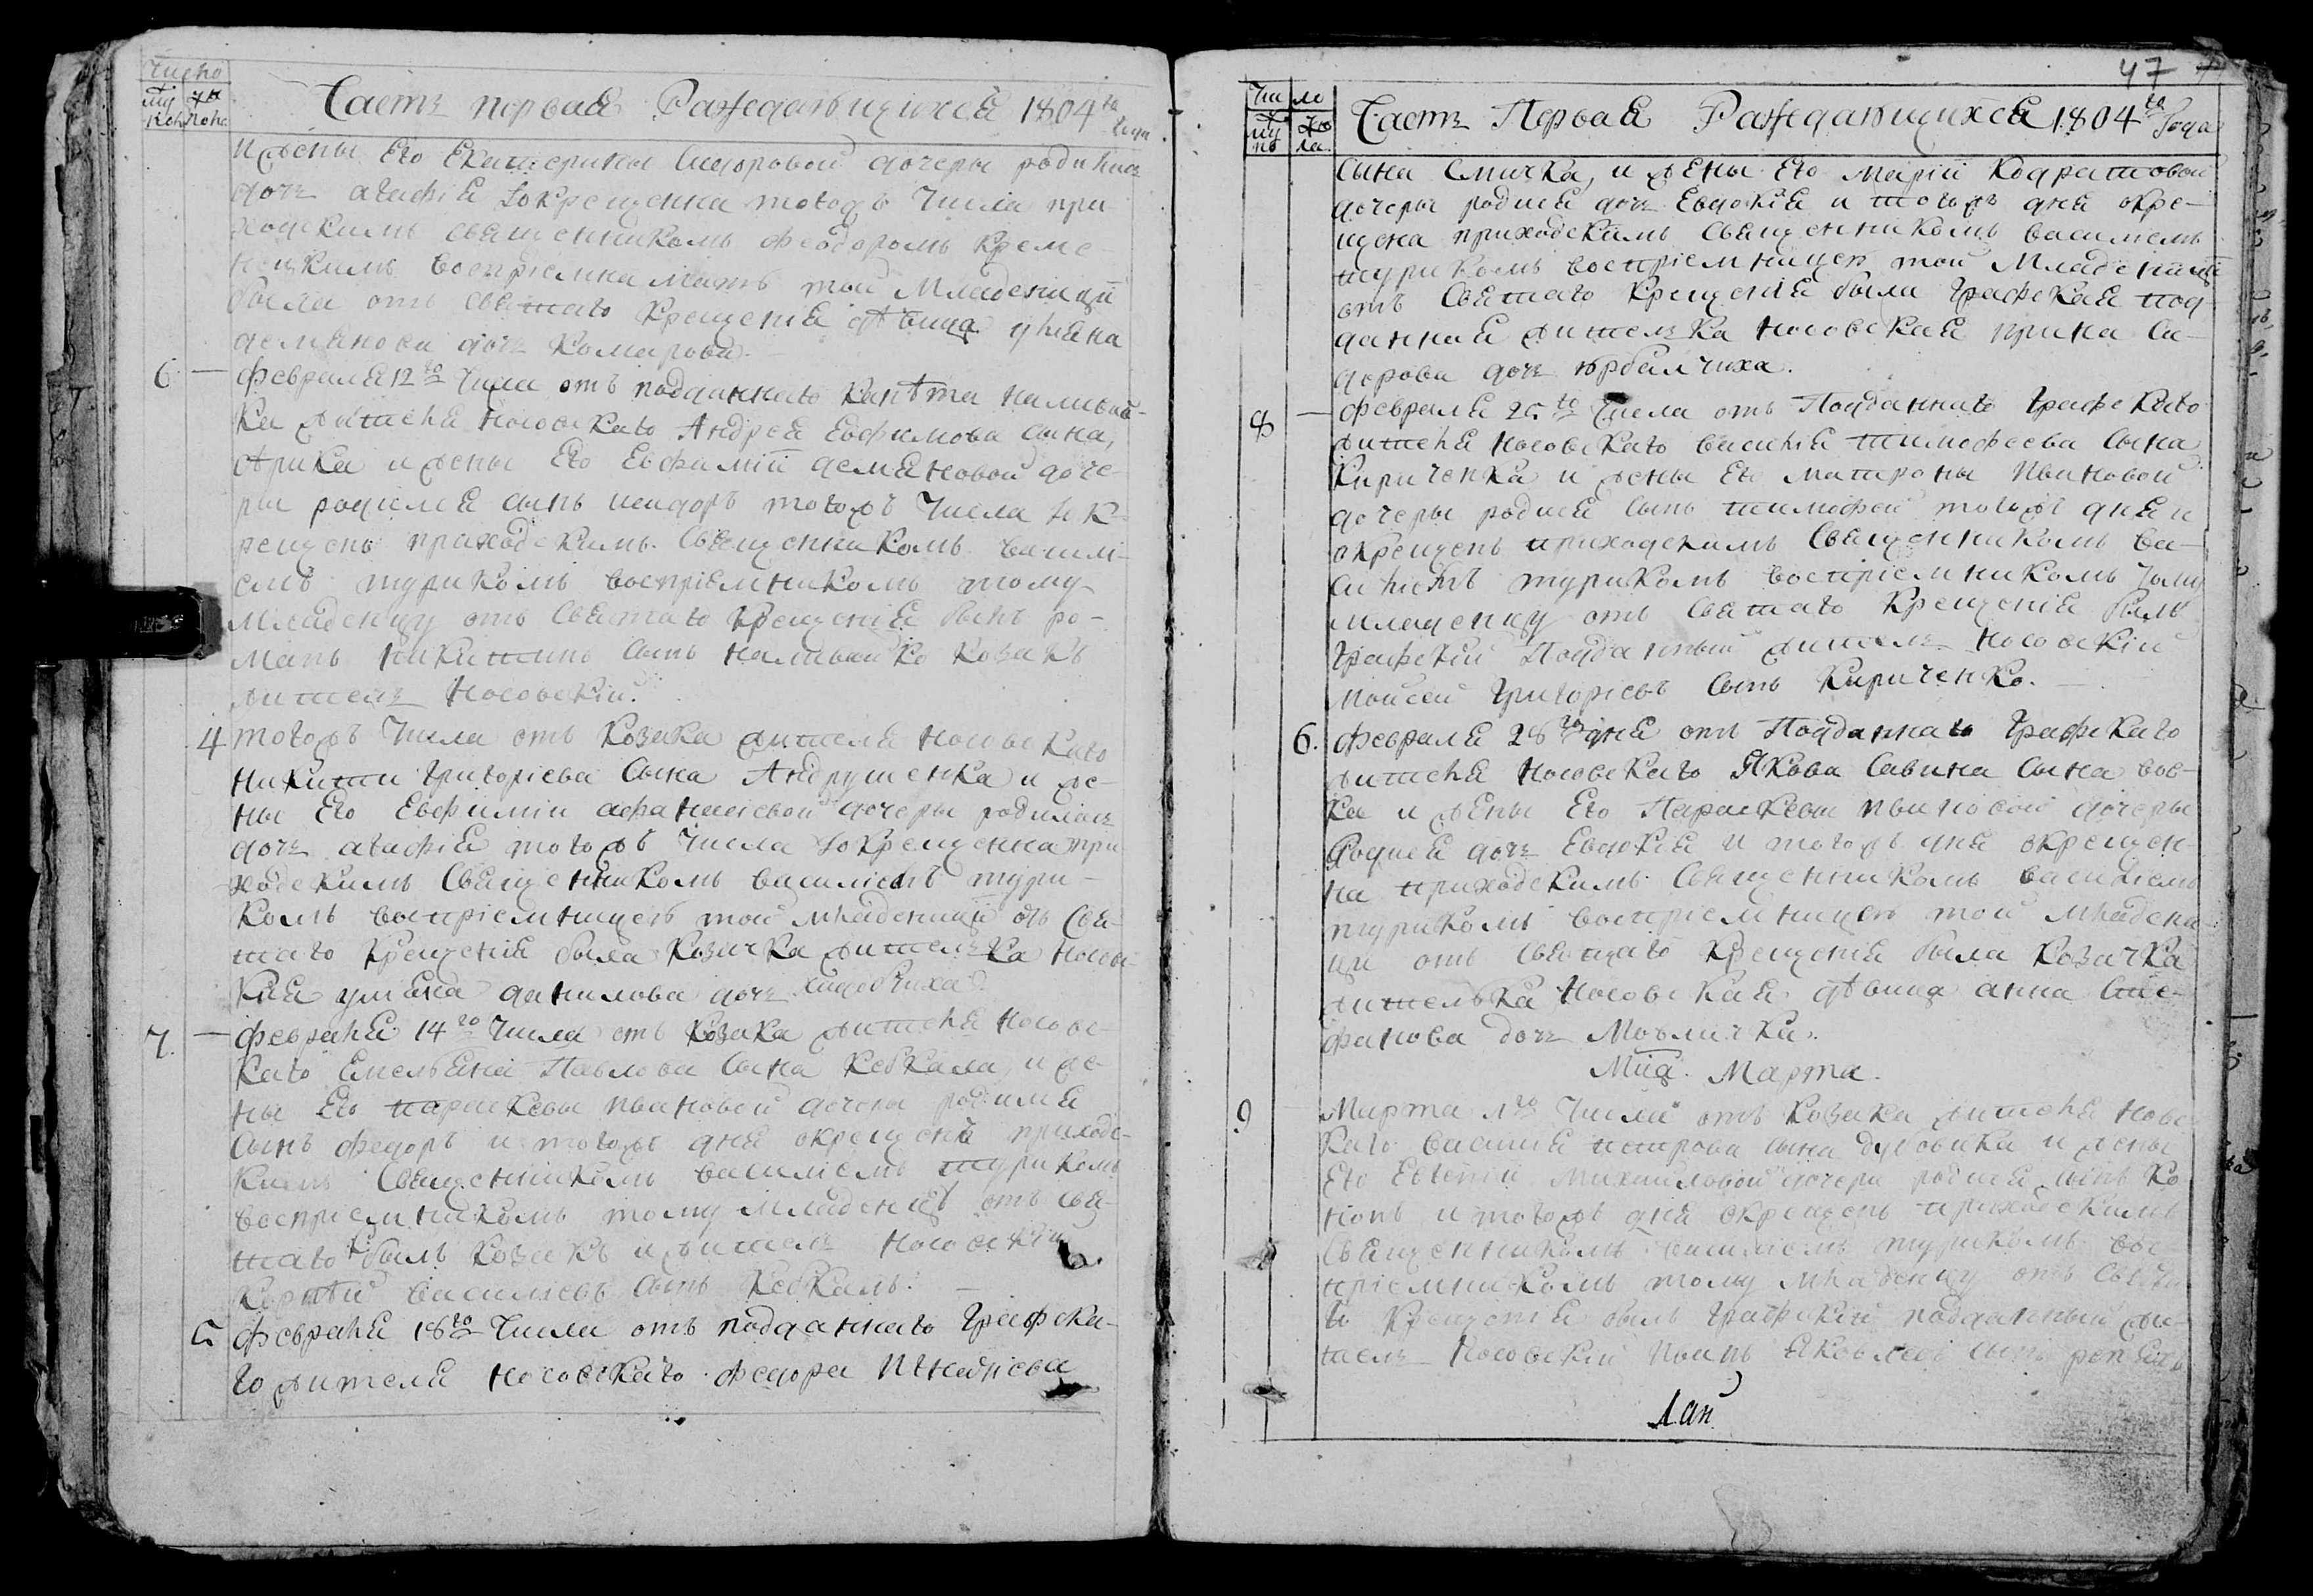 Число
му
жс
коп
пола
Часть первая Раждающихся 1804го
года
и жены его Екатерины Сидоровой дочеры родилась
дочь агафія окрещенна тогожъ числа при
ходскимъ священникомъ феодоромъ
воспріемника мать той младеници
была отъ святаго крещенія дѣвица уліяна
демянова дочь Комарова.
6 — февраля 12го числа отъ подданнаго
ка жителя носовскаго Андрея Евфимова сына,
и жены его Евфимїи демяновой доче
ры родился сынъ исидоръ тогожъ числа ок
рещенъ приходскимъ священникомъ василі
емъ туриκомъ воспріемникомъ тому
младенцу отъ святаго крещенія былъ ро-
манъ никитинъ сынъ наливайко козакъ
житель носовскій.
4 тогожъ числа отъ козака жителя носовскаго
никиты григоріева сына Андрушенка и же-
ны его Евфиміи афанасіевой дочеры родилась
дочь агафія тогожъ числа окрещенна при
ходскимъ священникомъ василіемъ тури-
комъ воспріемницею той младеници отъ свя-
таго крещенія была козачка жителька носов
кая уліяна данилова дочь
7. — февраля 14го числа отъ козака жителя носовс-
каго Емельяна Павлова сына Кебкала, и же-
ны его параскевы ивановой дочеры родился
сынъ федоръ и тогожъ дня окрещенъ приходс-
кимъ священникомъ василіемъ туриκомъ
воспріемникомъ тому младенцѣ отъ свя-
таго к. былъ козакъ и житель носовскій
василіевъ сынъ Кебкалъ. —
5 февраля 18го числа отъ подданнаго графска-
го жителя носовскаго федора Игнатіева
47
Чи
сло
му
же
пъ
ла.
Часть Первая Раждающихся 1804го года
сына Смичка, и жены его маріи кодратовой
дочеры родися дочь Евдокія и тогожъ дня окре-
щена приходскимъ священникомъ василіемъ
туриκомъ воспріемницею той младеници
отъ святаго крещенія была графская под
данная жителька носовская ирина си-
дорова дочь
8 — февраля 25го числа отъ Подданнаго графскаго
жителя носовскаго василія тимофеева сына
Кириченка и жены его матроны ивановой
дочеры родися сынъ тимофей тогожъ дня и
окрещенъ приходскимъ священникомъ ва-
силіемъ туриκомъ воспріемникомъ тому
младенцу отъ святаго крещенія былъ
графскій Подданный житель носовскій
моисей григоріевъ сынъ Кириченко. —
6. февраля 28го дня отъ Подданнаго графскаго
жителя носовскаго Якова Савина сына вов-
ка и жены его Параскевы ивановой дочеры
родися дочь Евдокія и тогожъ дня окрещен-
на приходскимъ священникомъ василіемъ
туриκомъ воспріемницею той младени-
ци отъ святаго крещенія была козачка
жителька носовская дѣвица анна сте-
фанова дочь
Мца. Марта.
9 Марта 1го числа отъ козака жителя новс
каго василія петрова сына дубовика и жены
его Евгеніи михайловой дочери родися сынъ ко
нонъ и тогожъ дня окрещенъ приходскимъ
священникомъ василіемъ туриκомъ вос-
пріемникомъ тому младенцу отъ свята
го крещенія былъ графскій подданный жи-
тель носовскій иоанъ яковлевъ сынъ